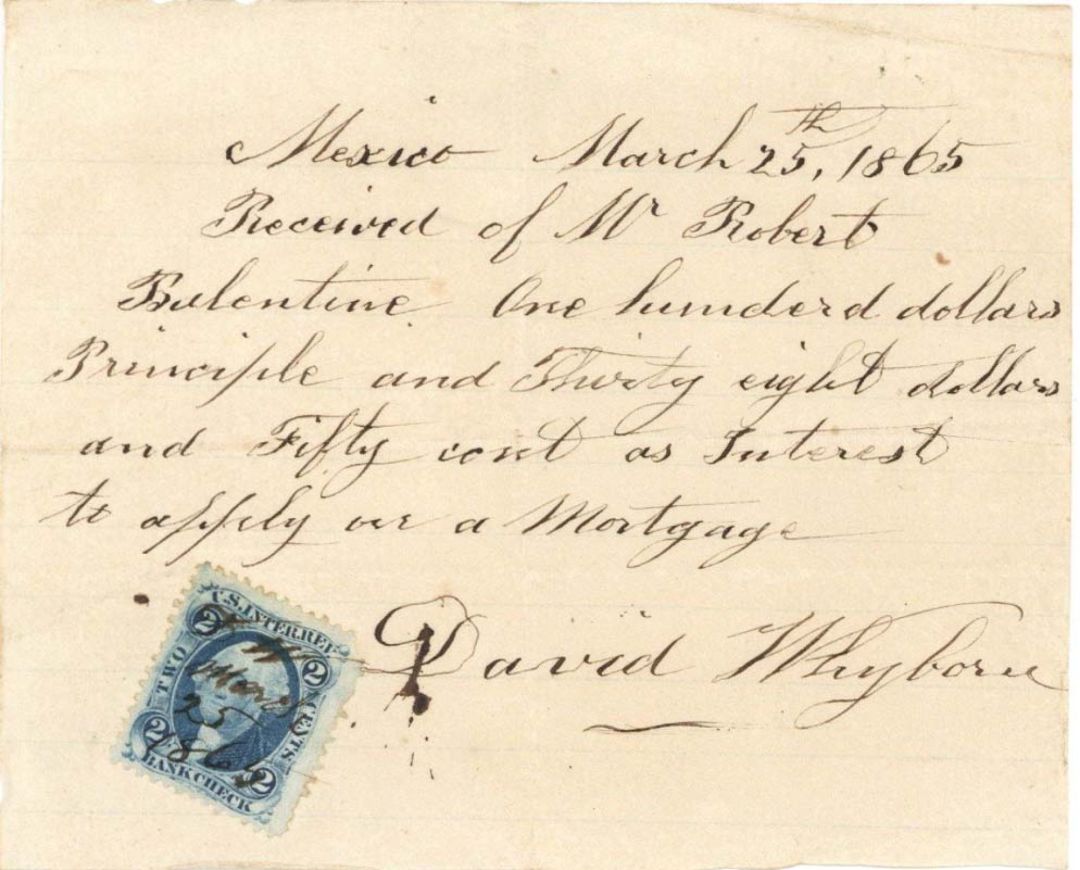 Mexico March 25th, 1865
Received of Mr Robert
Balentine One hunderd dollars
Principle and Thirty eight dollars
and Fifty cent as Interest
to apply on a Mortgage
David Whyborn
U.S. INTER. REV.
2 2
TWO CENTS
2 2
BANK CHECK
W
March
25
1865